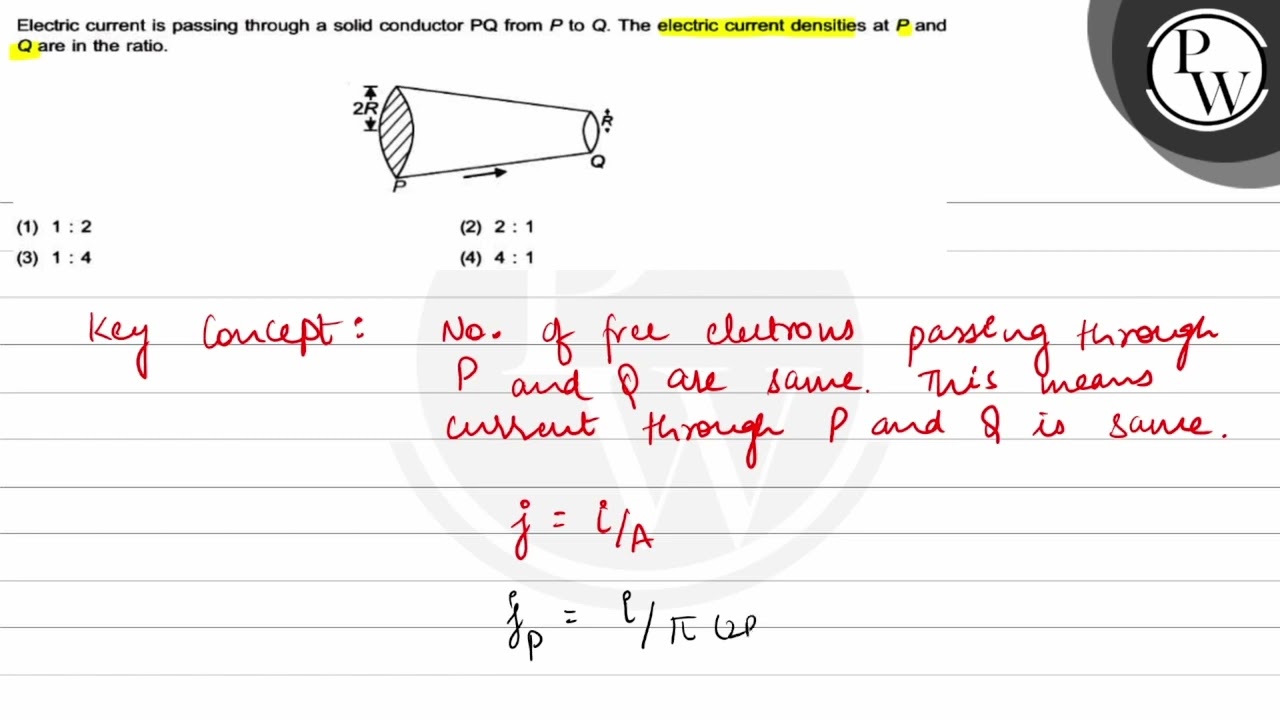 Electric current is passing through a solid conductor PQ from P to Q. The electric current densities at P and
Q are in the ratio.
P
W
2R
R
Q
P
(1) 1 : 2
(2) 2 : 1
(3) 1 : 4
(4) 4 : 1
Key Concept: No. of free electrons passing through
P and Q are same. This means
current through P and Q is same.
j = i/A
j_P = i/π (2R